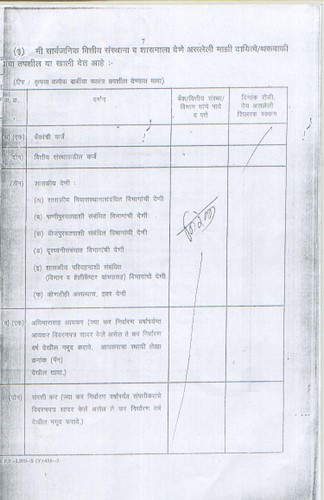 7
(३) मी सार्वजनिक वित्तीय संस्थांना व शासनाला देणे असलेली माझी दायित्वे/थकबाकी
यांचा तपशील या खाली देत आहे :-
(टीप : कृपया प्रत्येक बाबींचा स्वतंत्र तपशील देण्यात यावा)
अ.क्र. वर्णन बँक/वित्तीय संस्था/ विभाग यांचे नावे व पत्ते दिनांक रोजी, देय असलेली शिल्लक रक्कम
(एक) बँकांची कर्जे
(दोन) वित्तीय संस्थांकडील कर्जे
(तीन) शासकीय देणी
(अ) शासकीय निवासस्थानासंबंधित विभागांची देणी
(ब) पाणीपुरवठ्याशी संबंधित विभागांची देणी
(क) वीजपुरवठ्याशी संबंधित विभागांची देणी
(ड) दूरध्वनीसंबंधात विभागांची देणी
(इ) शासकीय परिवहनाशी संबंधित
(विमान व हेलीकॉप्टर यांच्यासह) विभागांची देणी
(फ) कोणतीही असल्यास, इतर देणी
(एक) अधिभारासह आयकर (ज्या कर निर्धारण वर्षापर्यंत
आयकर विवरणपत्र सादर केले असेल ते कर निर्धारण
वर्ष देखील नमूद करावे. आयकराचा स्थायी लेखा
क्रमांक (पॅन)
देखील द्यावा.)
(दोन) संपत्ती कर (ज्या कर निर्धारण वर्षापर्यंत संपत्तीकराचे
विवरणपत्र सादर केले असेल ते कर निर्धारण वर्ष
देखील नमूद करावे.)